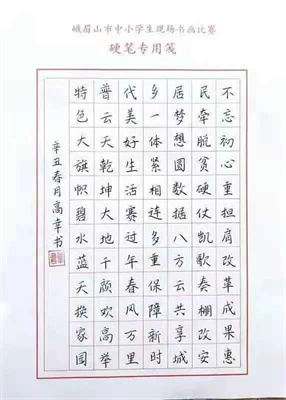 峨眉山市中小学生现场书画比赛
硬笔专用笺
不忘初心重担肩改革成果惠
民牵脱贫硬仗凯歌奏棚改安
居梦想圆数据八方云共享城
乡一体紧相连多重保障新时
代美好生活赛过年春风万里
普云天乾坤大地千颜欢高举
特色大旗帜碧水蓝天换家园
辛丑春月高章书